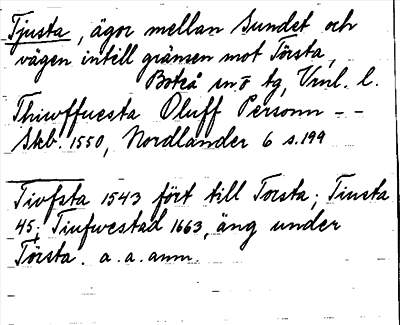 Tjusta, ägor mellan Sundet och
vägen intill gränsen mot Törsta,
Boteå sn o tg, Vrnl. l.
Thiwffuesta Oluff Personn - -
Skb. 1550, Nordlander 6 s.199
Tivfsta 1543 fört till Torsta; Tiusta
45; Tiufwestad 1663, äng under
Törsta. a.a. anm.